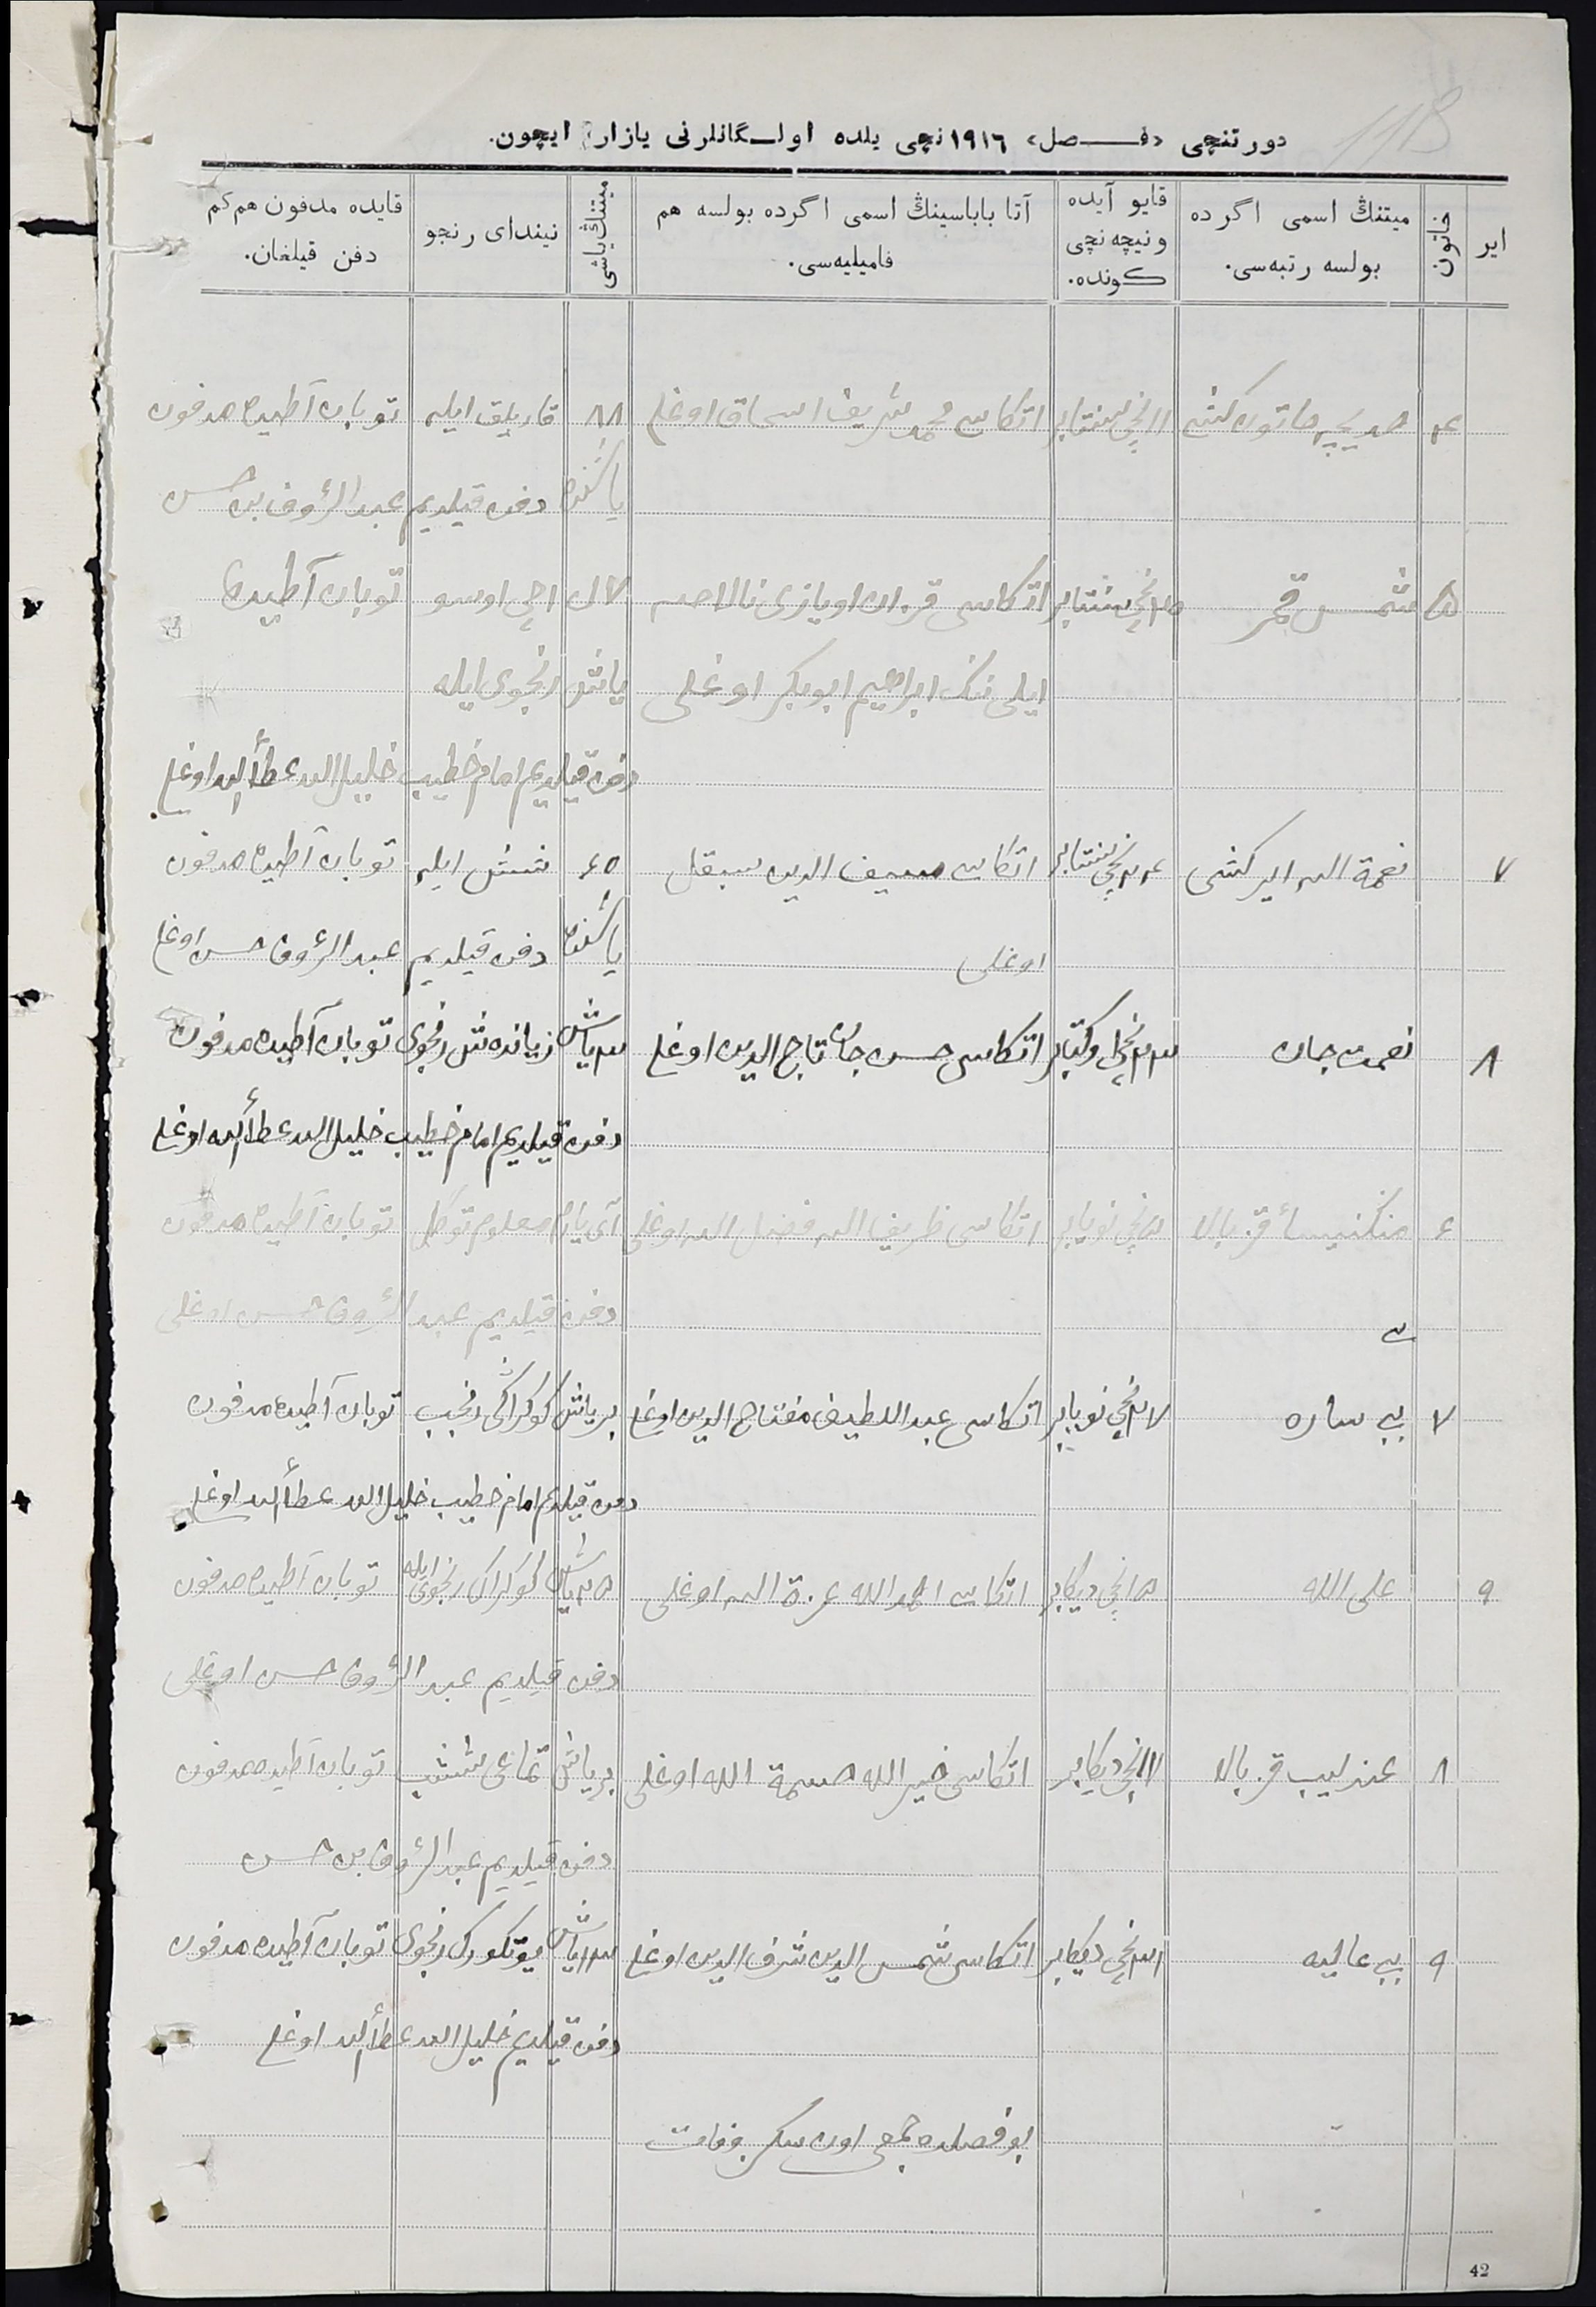 دورتنچی «فـصل» ١٩١٦ نچی یلده اولـگانلرنی یازار ایچون.
ایر
خاتون
میتنڭ اسمی اگرده بولسه رتبه‌سی.
قایو آیده ونیچه‌نچی کونده.
آتا باباسینڭ اسمی اگرده بولسه هم فامیلیه‌سی.
میتنڭ یاشی
نیندای رنجو
قایده مدفون هم کم دفن قیلغان.
٤ خدیجه خاتون کشی ١١ نچی سنتابر اتکاسی محمد شریف اسحاق اوغلی ٨٨ قاریلق ایله توبان آطیده مدفون
یاشنده دفن قیلدیم عبد الرؤف بن حسن
٥ شمس قمر سنتابر اتکاسی قزان اویازی
یاش رنجوی ایله ایلی ننک ابراهیم ابوبکر اوغلی
دفن قیلدیم امام خطیب خلیل الله عطأ الله اوغلی
٧ نعمة الله ایر کشی ٢٤ نچی سنتابر اتکاسی سیف الدین اوغلی ٤٥ شش ایله توبان آطیده مدفون
یاشنده دفن قیلدیم عبد الرؤف حسن اوغلی
٨ نعمت جان ٢٣ نچی اوکتابر اتکاسی حسن جان تاج الدین اوغلی ٣ یاش رنجوی توبان آطیده مدفون
دفن قیلدیم امام خطیب خلیل الله عطأ الله اوغلی
٦ قز بالا نویابر اتکاسی ظریف الله فضل الله اوغلی توبان آطیده مدفون
دفن قیلدیم عبد الرؤف حسن اوغلی
٧ بی بی ساره ٢٧ نچی نویابر اتکاسی عبد اللطیف مفتاح الدین اوغلی بر یاش توبان آطیده مدفون
دفن قیلدیم امام خطیب خلیل الله عطأ الله اوغلی
٩ علی الله ١٥ نچی دیکابر اتکاسی احمد الله عزة الله اوغلی ٢٥ یاش کوکراک رنجوی ایله توبان آطیده مدفون
دفن قیلدیم عبد الرؤف حسن اوغلی
٨ عندلیب قز بالا ١٧ نچی دیکابر اتکاسی خیر الله الله اوغلی بر یاش توبان آطیده مدفون
دفن قیلدیم عبد الرؤف بن حسن
٩ بی بی عالیه ٣١ نچی دیکابر اتکاسی شمس الدین شرف الدین اوغلی ١٣ یاش یوتکورک رنجوی توبان آطیده مدفون
دفن قیلدیم خلیل الله عطأ الله اوغلی
بو فصلده جمعی اون سکز وفات
42